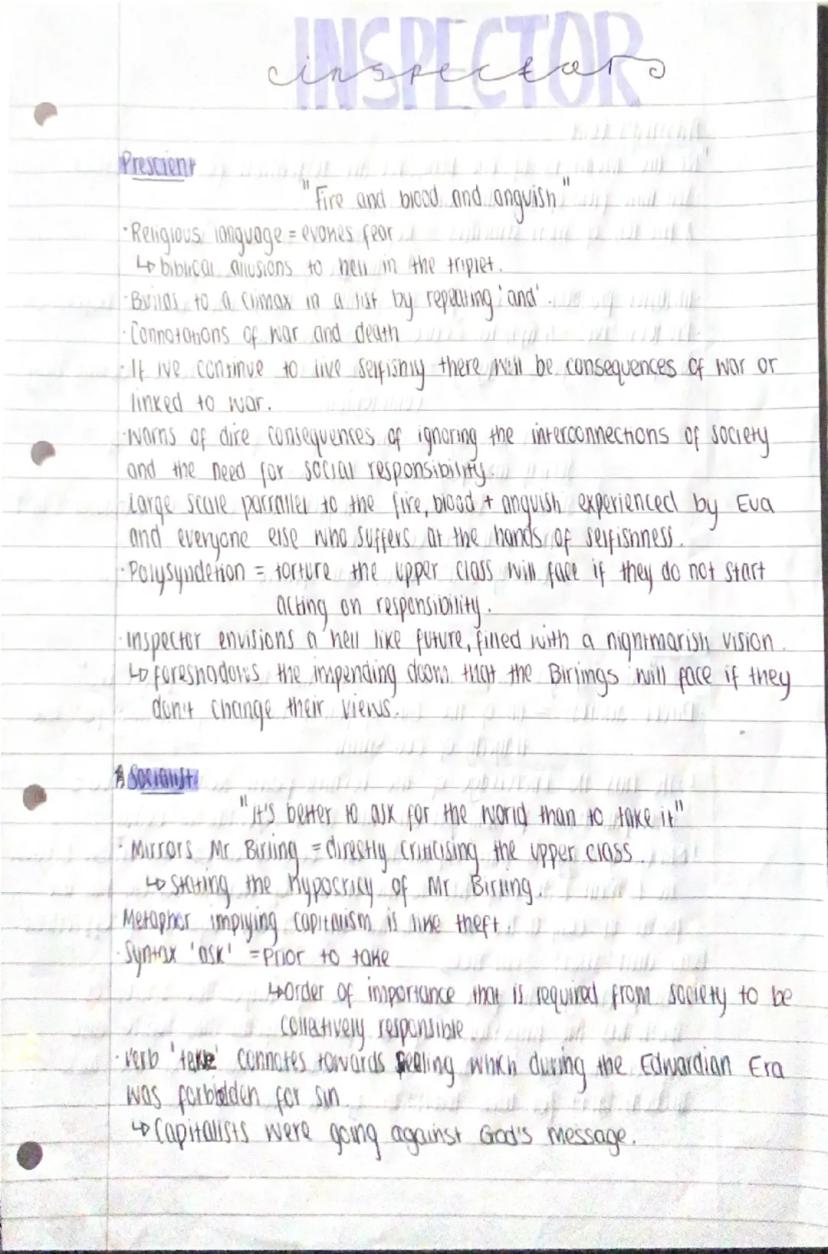 INSPECTOR
inspector
Prescient
"Fire and blood and anguish"
·Religious language = evokes fear
↳biblical allusions to hell in the triplet.
·Builds to a climax in a list by repeating 'and'.
·Connotations of war and death
·If we continue to live selfishly there will be consequences of war or
linked to war.
·Warns of dire consequences of ignoring the interconnections of society
and the need for social responsibility.
·Large scale parraller to the fire, blood + anguish experienced by Eva
and everyone else who suffers at the hands of selfishness.
·Polysyndeton = torture the upper class will face if they do not start
acting on responsibility.
·Inspector envisions a hell like future, filled with a nightmarish vision.
↳foreshadows the impending doom that the Birlings will face if they
don't change their views.
Socialist
"It's better to ask for the world than to take it"
·Mirrors Mr Birling = directly criticising the upper class.
↳Stating the hypocricy of Mr Birling.
Metaphor implying capitalism is like theft.
·Syntax 'ask' = Prior to take
↳Order of importance that is required from society to be
collatively responsible.
·Verb 'take' connotes towards which during the Edwardian Era
was forbidden for sin
↳Capitalists were going against God's message.